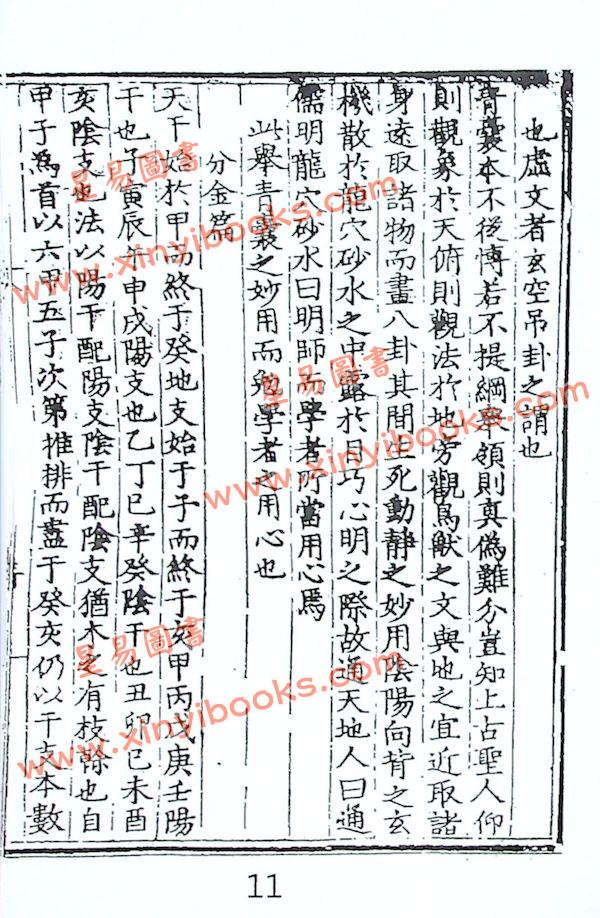 也虛文者玄空吊卦之謂也
青囊本不後博若不提綱挈領則真偽難分豈知上古聖人仰
則觀象於天俯則觀法於地旁觀鳥獸之文與地之宜近取諸
身遠取諸物而畫八卦其間生死動靜之妙用陰陽向背之玄
機散於龍穴砂水之中露於目巧心明之際故通天地人曰通
儒明龍穴砂水曰明師而學者所當用心焉
此舉青囊之妙用而勉學者之用心也
分金篇
天干始於甲而終于癸地支始于子而終于亥甲丙戊庚壬陽
干也子寅辰午申戌陽支也乙丁巳辛癸陰干也丑卯巳未酉
亥陰支也法以陽干配陽支陰干配陰支猶木之有枝榦也自
甲子為首以六甲五子次第推排而盡于癸亥仍以干支本數
星易圖書
www.xinyibooks.com
星易圖書
www.xinyibooks.com
星易圖書
www.xinyibooks.com
11